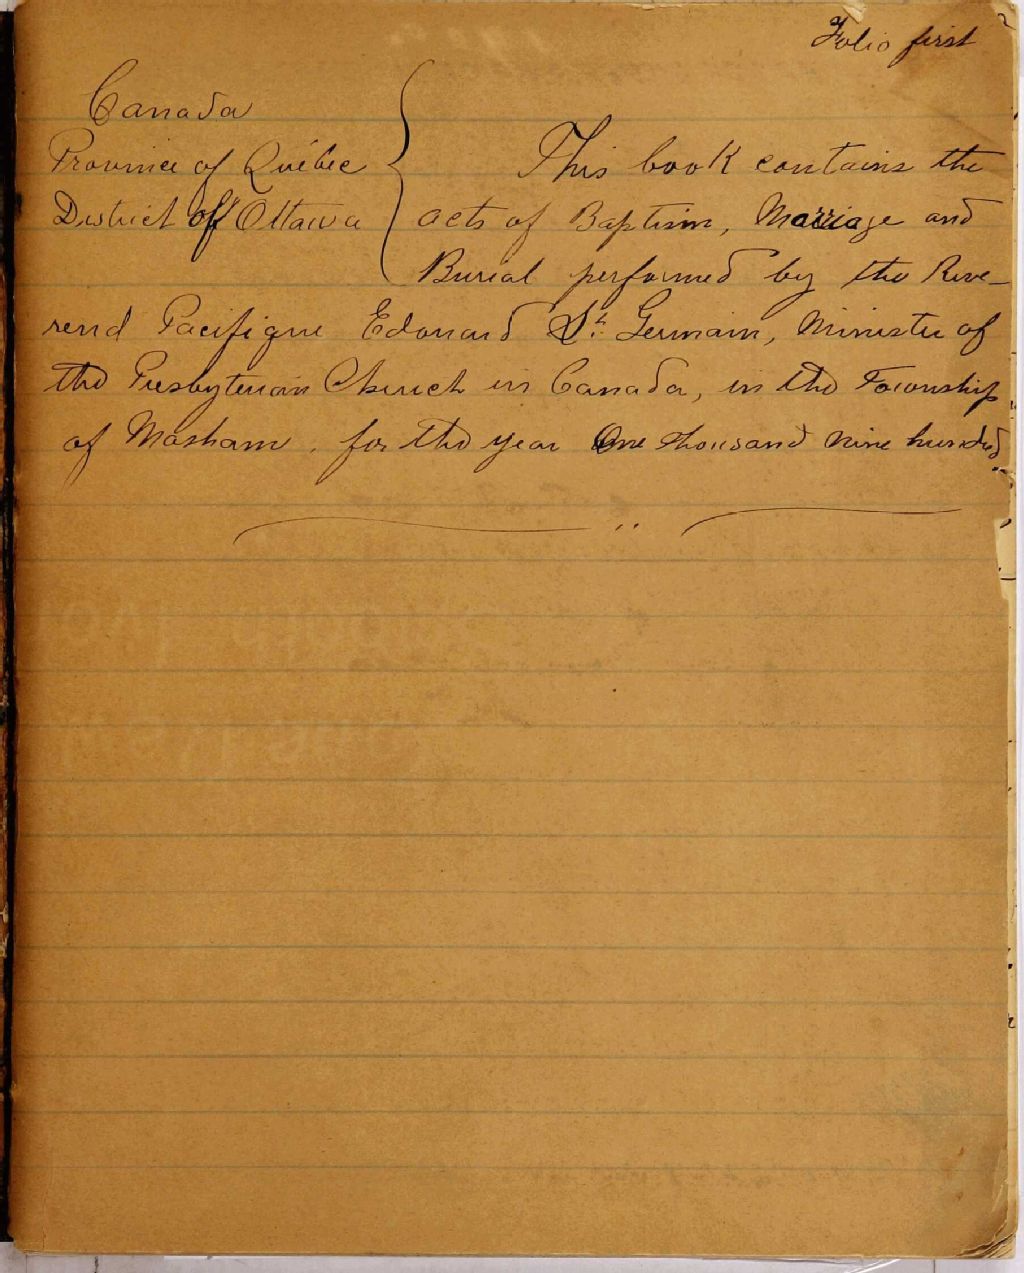 Folio first
Canada
Province of Québec
District of Ottawa
This book contains the
acts of Baptism, Marriage and
Burial performed by the Reve-
rend Pacifique Edouard St. Germain, Minister of
the Presbyterian Church in Canada, in the Township
of Masham, for the year One thousand nine hundred